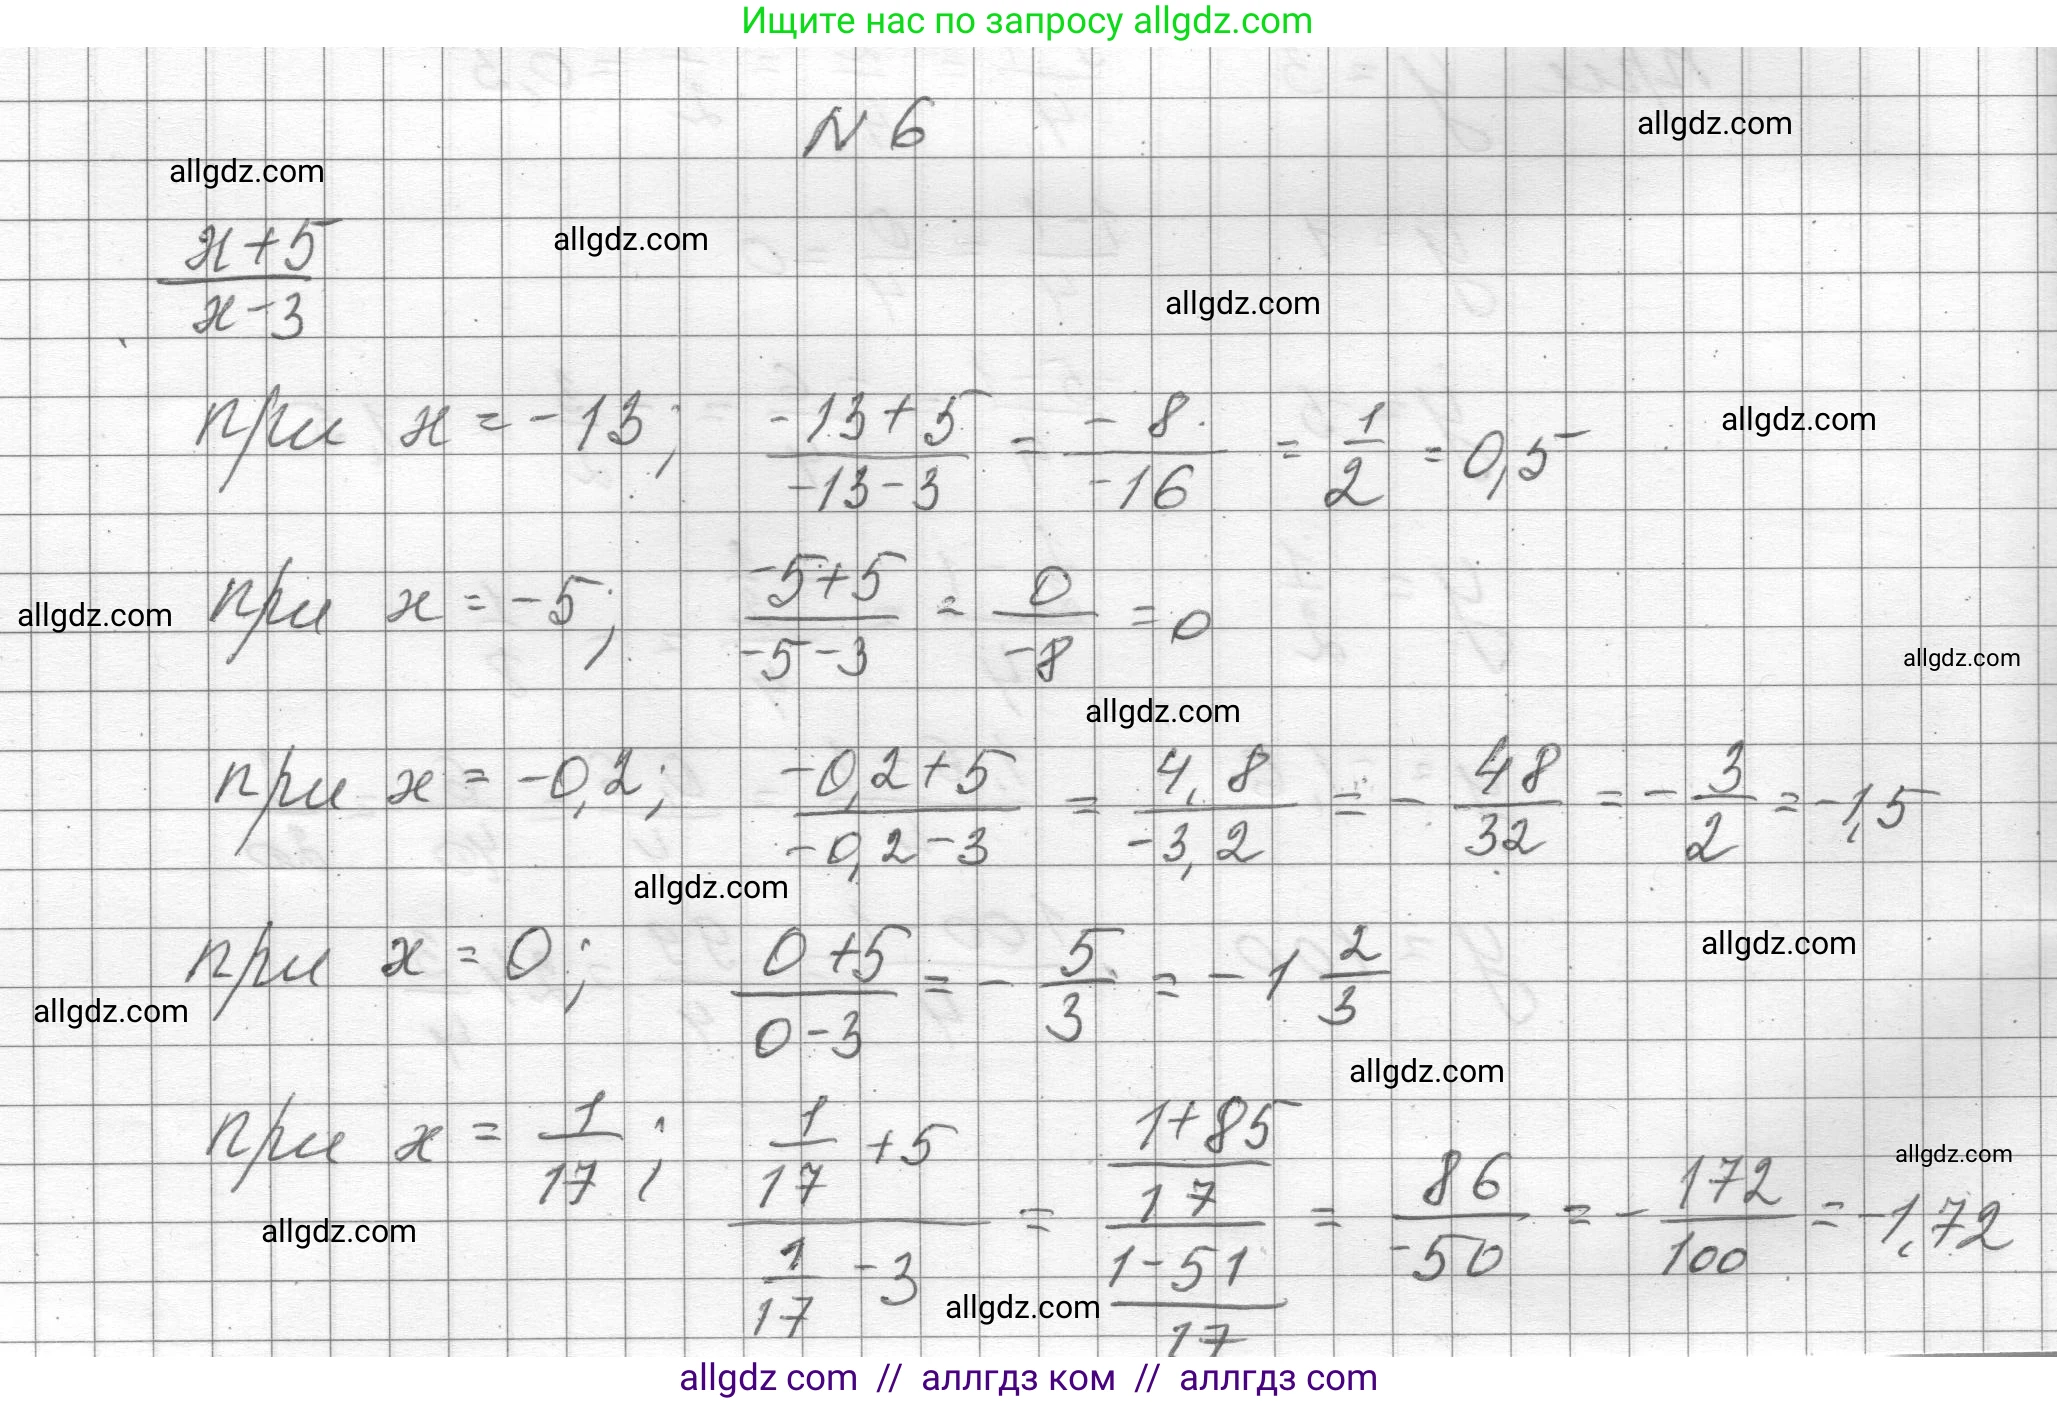 Ищите нас по запросу allgdz.com
N 6
allgdz.com
allgdz.com
x+5
x-3
allgdz.com
allgdz.com
при x = -13; (-13+5)/(-13-3) = (-8)/(-16) = 1/2 = 0,5
allgdz.com
при x = -5; (-5+5)/(-5-3) = 0/(-8) = 0
allgdz.com
allgdz.com
allgdz.com
при x = -0,2; (-0,2+5)/(-0,2-3) = 4,8/(-3,2) = -48/32 = -3/2 = -1,5
allgdz.com
при x = 0; (0+5)/(0-3) = -5/3 = -1 2/3
allgdz.com
allgdz.com
allgdz.com
при x = 1/17; (1/17 + 5)/(1/17 - 3) = ((1+85)/17)/((1-51)/17) = 86/(-50) = -172/100 = -1,72
allgdz.com
allgdz.com
allgdz.com
allgdz com // аллгдз ком // аллгдз com